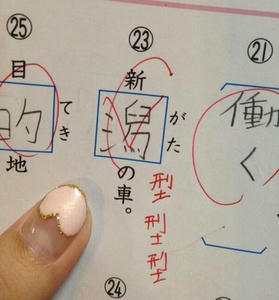 ㉑
働
く
㉓
新潟の車。
がた
型
型
型
㉔
㉕
目的地
てき